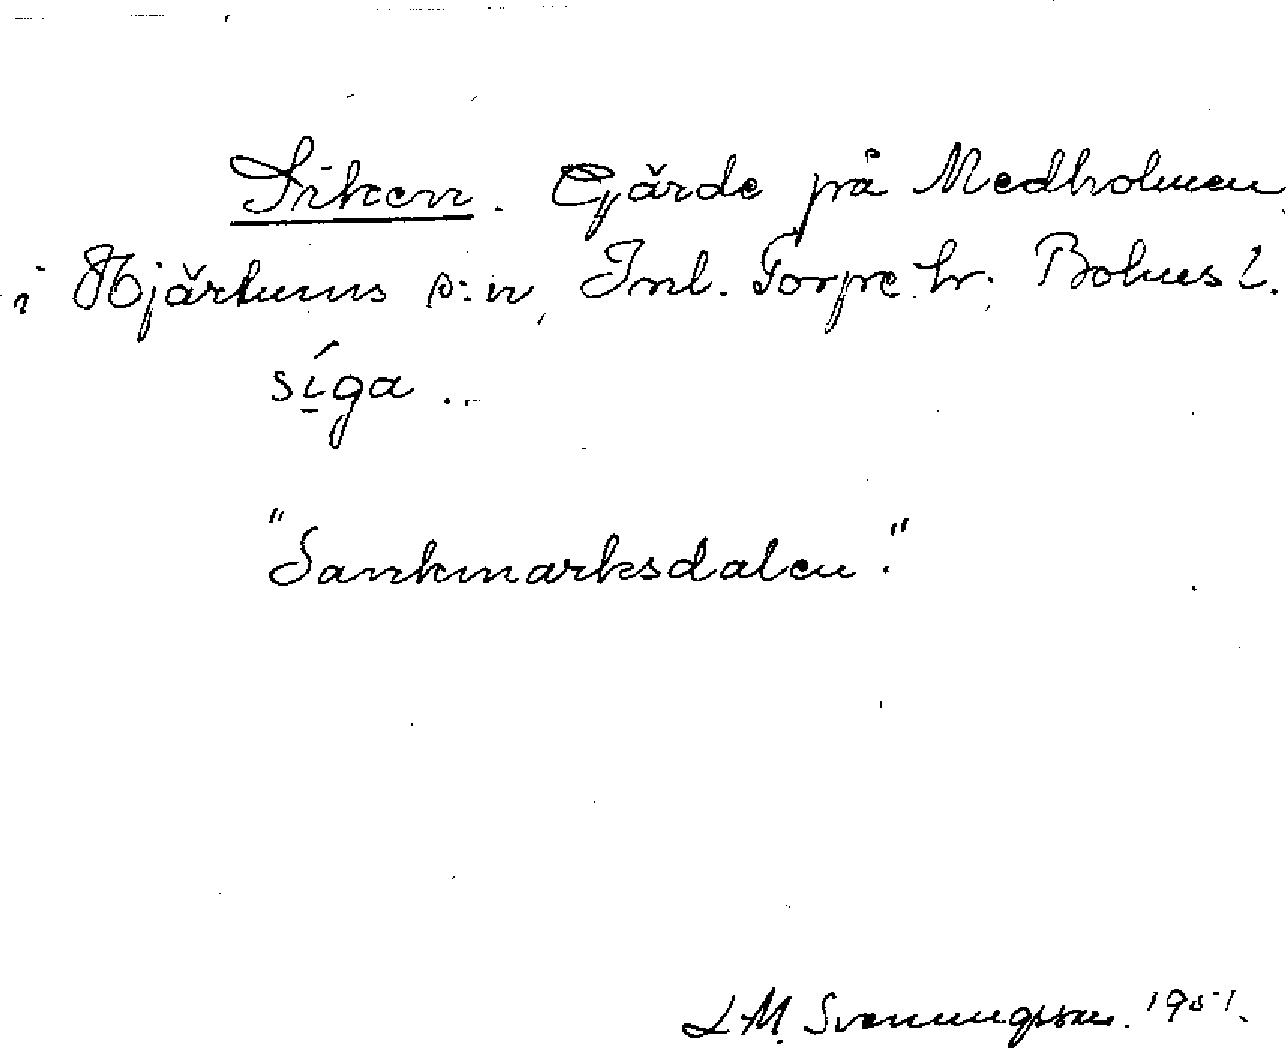 Siken. Gärde på Medholmen
i Hjärtums s:n, Inl. Torpe hr. Bohusl.
síga.
"Sankmarksdalen."
L M. Svenungsson. 1951.